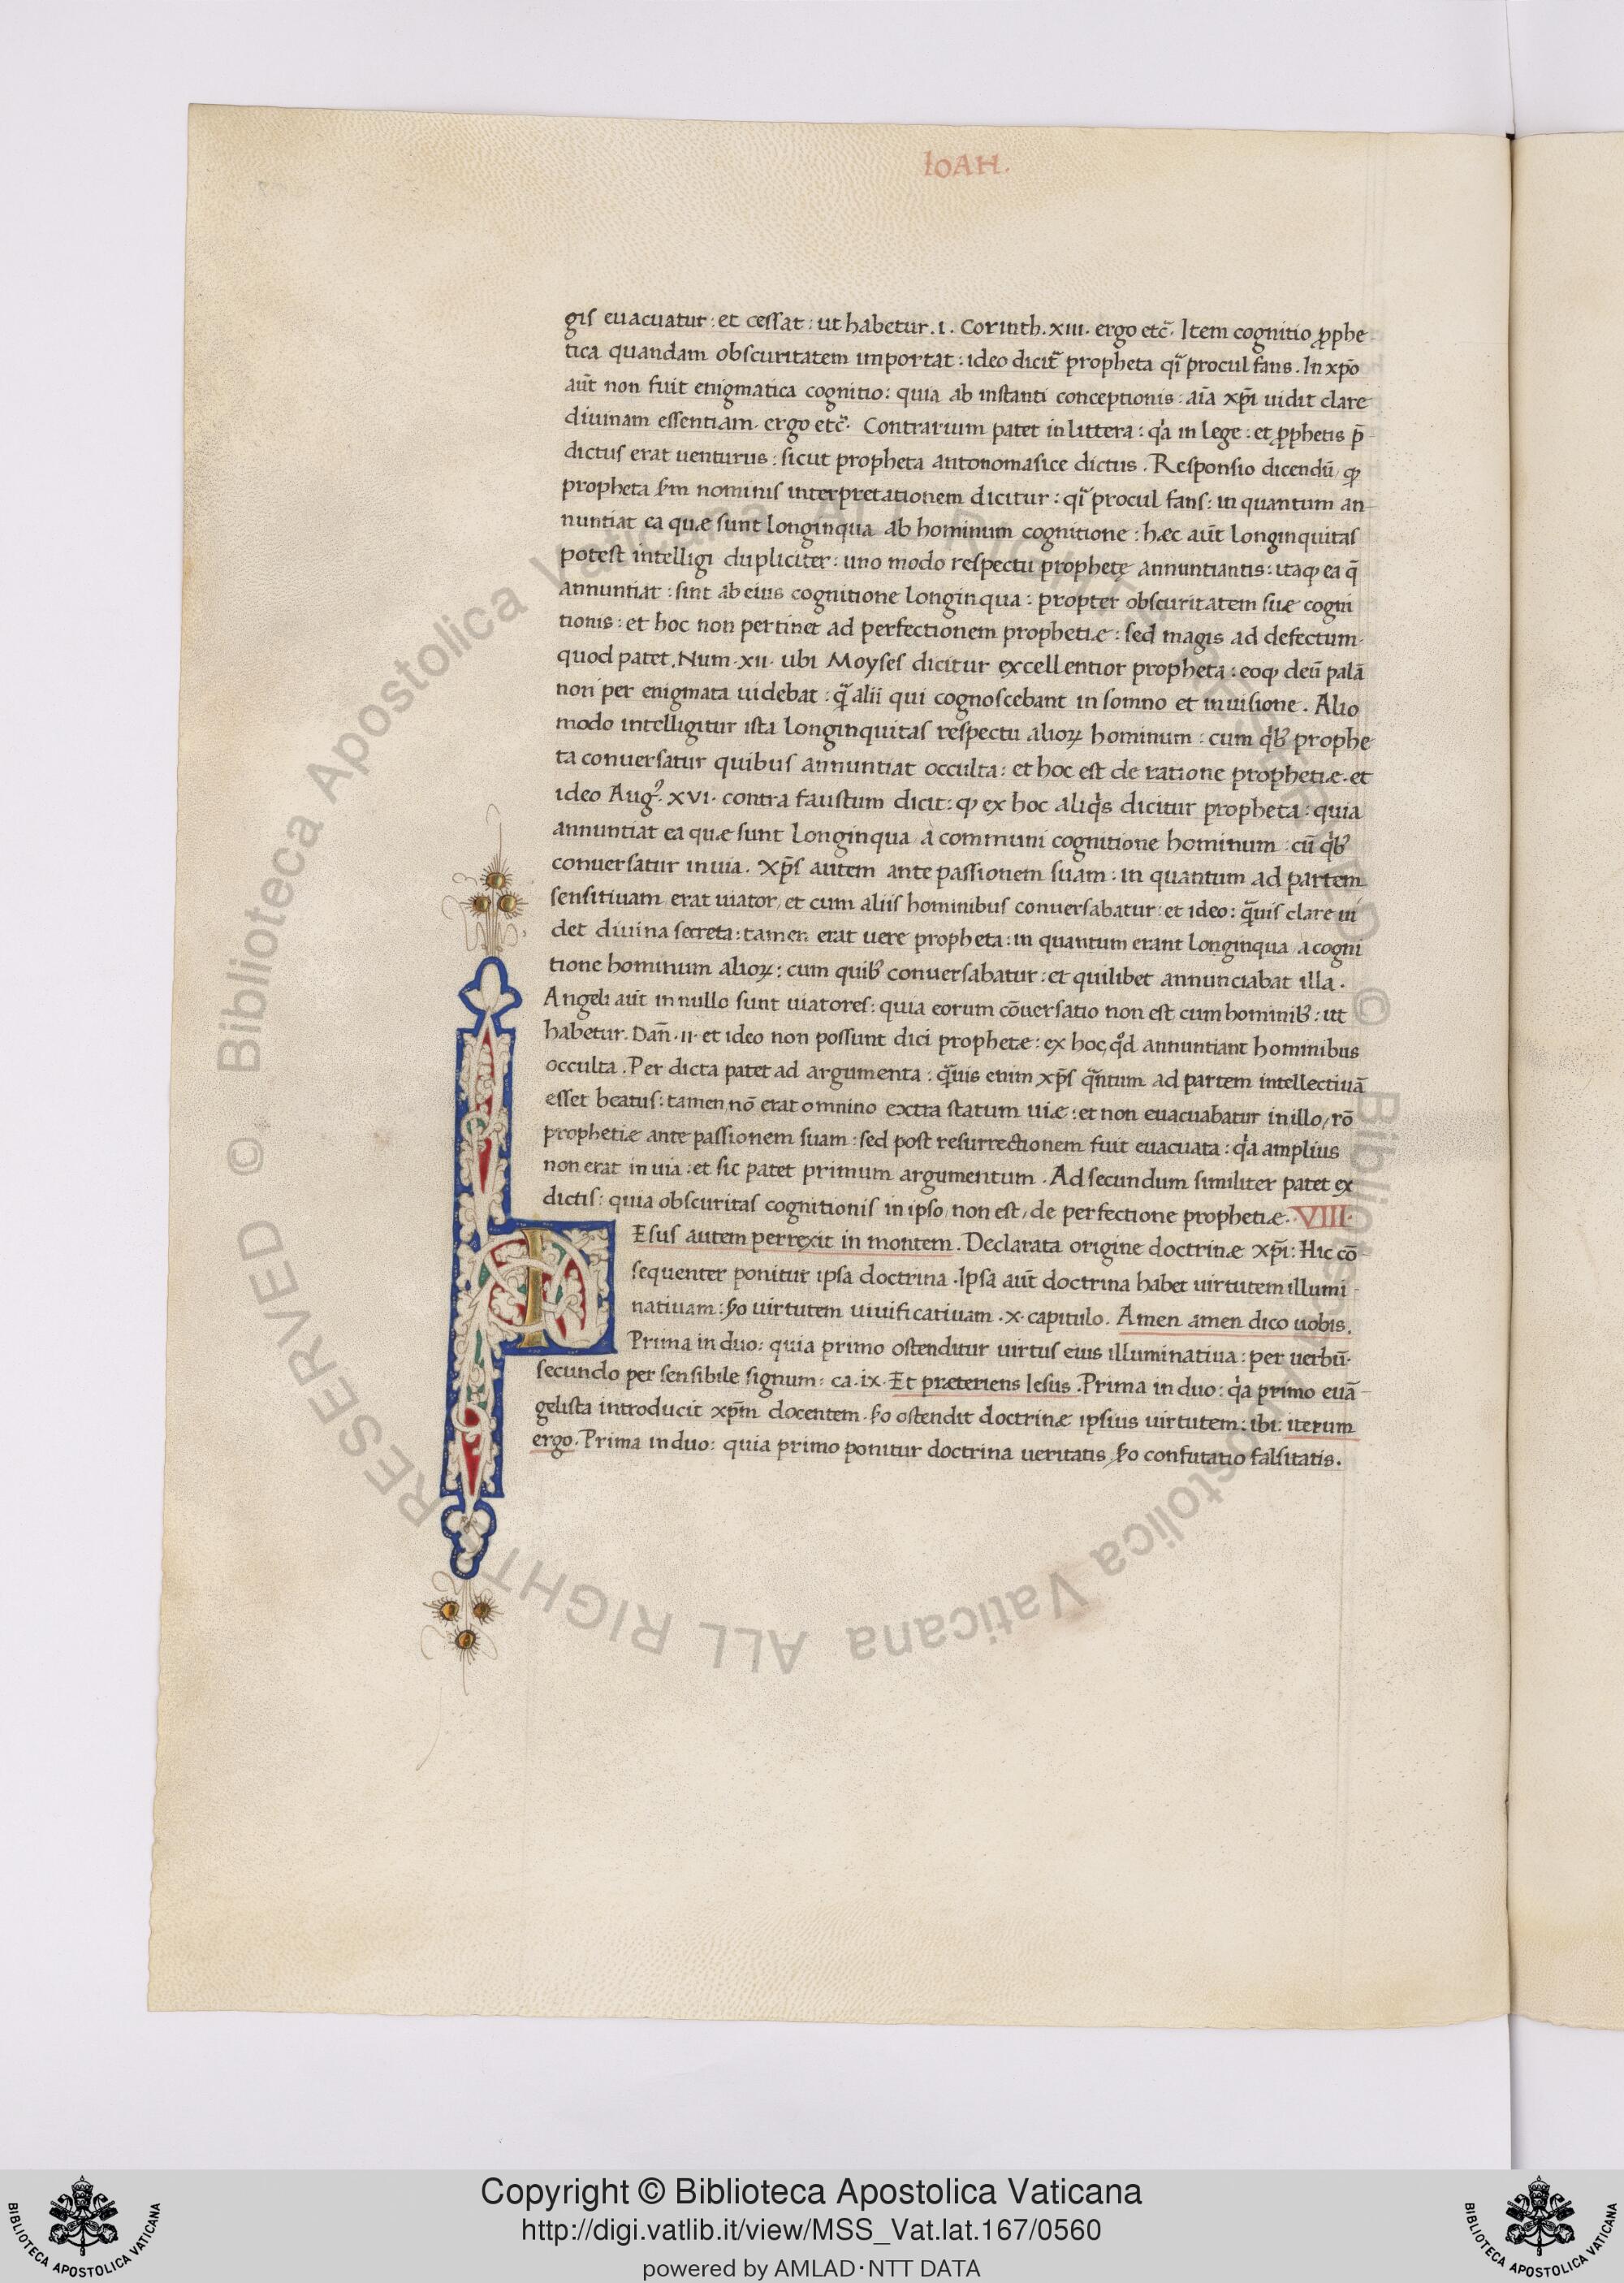 IOAH.
gis euacuatur: et cessat: ut habetur .I. Corinth. XIII. ergo etc̃. Item cognitio ꝓphe
tica quandam obscuritatem importat: ideo dicit̃ propheta qĩ procul fans. In xp̃o
aũt non fuit enigmatica cognitio: quia ab instanti conceptionis: aĩa xp̃i uidit clare
diuinam essentiam. ergo etc̃. Contrarium patet in littera: q̓a in lege: et ꝓphetis p̃
dictus erat uenturus: sicut propheta antonomasice dictus. Responsio dicendũ ꝙ
propheta s̃m nominis interpretationem dicitur: qĩ procul fans: in quantum an
nuntiat ea quæ sunt longinqua ab hominum cognitione: hæc aũt longinquitas
potest intelligi dupliciter: uno modo respectu prophetę annuntiantis: itaꝙ ea q̃
annuntiat: sint ab eius cognitione longinqua: propter obscuritatem suæ cogni
tionis: et hoc non pertinet ad perfectionem prophetiæ: sed magis ad defectum.
quod patet. Num. XII. ubi Moyses dicitur excellentior propheta: eoꝙ deũ palã
non per enigmata uidebat: q̃ alii qui cognoscebant in somno et in uisione. Alio
modo intelligitur ista longinquitas respectu alioꝝ hominum: cum q̓bꝰ prophe
ta conuersatur quibus annuntiat occulta: et hoc est de ratione prophetiæ. et
ideo Augꝰ. XVI. contra faustum dicit: ꝙ ex hoc aliq̓s dicitur propheta: quia
annuntiat ea quæ sunt longinqua a communi cognitione hominum: cũ q̓bꝰ
conuersatur in uia. Xp̃s autem ante passionem suam: in quantum ad partem
sensitiuam erat uiator, et cum aliis hominibus conuersabatur: et ideo: q̃uis clare ui
det diuina secreta: tamen erat uere propheta: in quantum erant longinqua a cogni
tione hominum alioꝝ: cum quibꝰ conuersabatur: et quilibet annunciabat illa.
Angeli aũt in nullo sunt uiatores: quia eorum cõuersatio non est cum hominibꝰ: ut
habetur. Dañ. II. et ideo non possunt dici prophetæ: ex hoc, q̊d annuntiant hominibus
occulta. Per dicta patet ad argumenta: q̃uis enim xp̃s q̃ntum ad partem intellectiuã
esset beatus: tamen nõ erat omnino extra statum uiæ: et non euacuabatur in illo, rõ
prophetiæ ante passionem suam: sed post resurrectionem fuit euacuata: q̓a amplius
non erat in uia: et sic patet primum argumentum. Ad secundum similiter patet ex
dictis: quia obscuritas cognitionis in ipso, non est, de perfectione prophetiæ. VIII.
IEsus autem perrexit in montem. Declarata origine doctrinæ xp̃i: Hic cõ
sequenter ponitur ipsa doctrina. Ipsa aũt doctrina habet uirtutem illumi
natiuam: s̃o uirtutem uiuificatiuam .x. capitulo. Amen amen dico uobis.
Prima in duo: quia primo ostenditur uirtus eius illuminatiua: per uerbũ.
secundo per sensibile signum: ca. ix. Et præteriens Iesus. Prima in duo: q̓a primo euã
gelista introducit xp̃m docentem. s̃o ostendit doctrinæ ipsius uirtutem: ibi: iterum
ergo. Prima in duo: quia primo ponitur doctrina ueritatis, s̃o confutatio falsitatis.
© Biblioteca Apostolica Vaticana ALL RIGHTS RESERVED
© Biblioteca Apostolica Vaticana ALL RIGHTS RESERVED
Copyright © Biblioteca Apostolica Vaticana
http://digi.vatlib.it/view/MSS_Vat.lat.167/0560
powered by AMLAD·NTT DATA
BIBLIOTECA APOSTOLICA VATICANA
BIBLIOTECA APOSTOLICA VATICANA